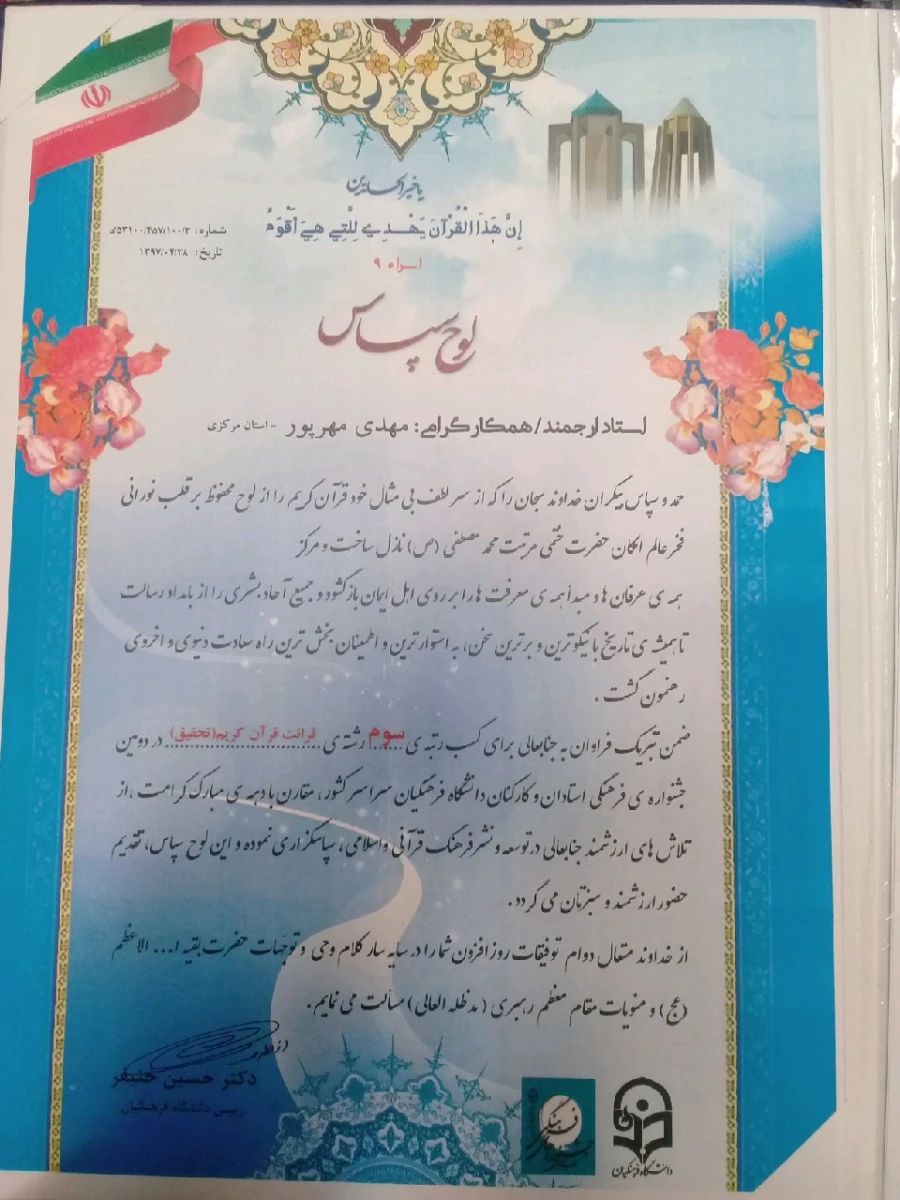 یا خیر الحامدین
إِنَّ هَذَا الْقُرْآنَ يَهْدِي لِلَّتِي هِيَ أَقْوَمُ
اسراء ۹
شماره: ۵۳۱۰۰/۴۵۷/۱۰۰/۳/د
تاریخ: ۱۳۹۷/۰۴/۲۸
لوح سپاس
استاد ارجمند/همکار گرامی: مهدی مهرپور - استان مرکزی
حمد و سپاس بیکران خداوند سبحان را که از سر لطف بی مثال خود قرآن کریم را از لوح محفوظ بر قلب نورانی
فخر عالم امکان حضرت ختمی مرتبت محمد مصطفی (ص) نازل ساخت و مرکز
همه ی عرفان ها و مبدأ همه ی معرفت ها را بر روی اهل ایمان باز گشود و جمیع آحاد بشری را از بامداد رسالت
تا همیشه ی تاریخ با نیکوترین و برترین سخن، به استوارترین و اطمینان بخش ترین راه سعادت دنیوی و اخروی
رهنمون گشت .
ضمن تبریک فراوان به جنابعالی برای کسب رتبه ی سوم رشته ی قرائت قرآن کریم(تحقیق) در دومین
جشنواره ی فرهنگی استادان و کارکنان دانشگاه فرهنگیان سراسر کشور، مقارن با دهه ی مبارک کرامت ، از
تلاش های ارزشمند جنابعالی در توسعه و نشر فرهنگ قرآنی و اسلامی، سپاسگزاری نموده و این لوح سپاس، تقدیم
حضور ارزشمند و سبزتان می گردد.
از خداوند متعال دوام توفیقات روز افزون شما را در سایه سار کلام وحی و توجهات حضرت بقیه ا... الاعظم
(عج) و منویات مقام معظم رهبری (مدظله العالی) مسألت می نمایم.
دکتر حسین خنیفر
رییس دانشگاه فرهنگیان
دانشگاه فرهنگیان